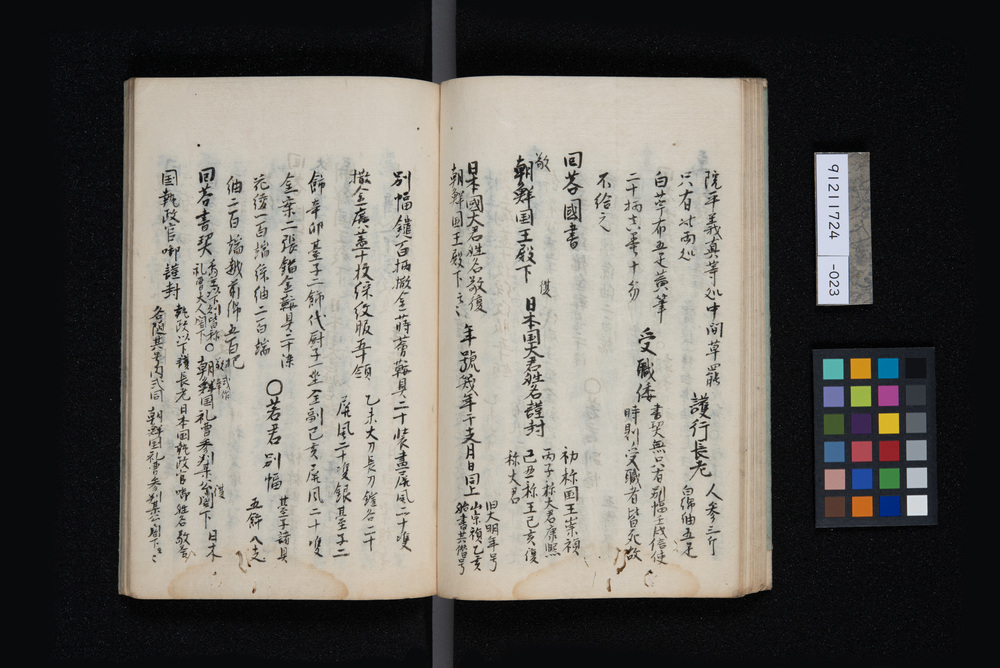 院平義真等処中間草罷 護行長老 人参三斤
只有此両処 白綿紬五疋
白苧布五疋黄筆 受職倭 書契無只有別幅壬戌信使
二十柄真墨十笏 時則受職者皆死故
不給之
回答國書
敬
朝鮮国王殿下 復 日本国大君姓名謹封
初称国王崇禎
丙子称大君康熙
己丑称王己亥復
称大君
日本國大君姓名敬復
朝鮮国王殿下云々 年號幾年干支月日同上
旧大明年号
崇禎乙亥
始書其僭号
別幅鑓百柄撒金蒔薈鞍具二十装畫屏風二十雙
撒金廣蓋十枚綵紋服五十領 乙未大刀長刀鑓各二十
飾辛卯臺子二飾代厨子坐全副己亥屏風二十雙
屏風二十雙銀臺子二
金案二張鍍金鞍具二十
花綾一百端綵紬二百端 〇若君別幅 臺子諸具
五飾
紬二百端越前綿五百把
回答書契 朝鮮国礼曹参判某公閣下 日本
国執政官啣謹封 執政以下護長老日本国執政官啣姓名敬答
各随其号内式同 朝鮮国礼曹参判某公閣下云々
91211724
-023